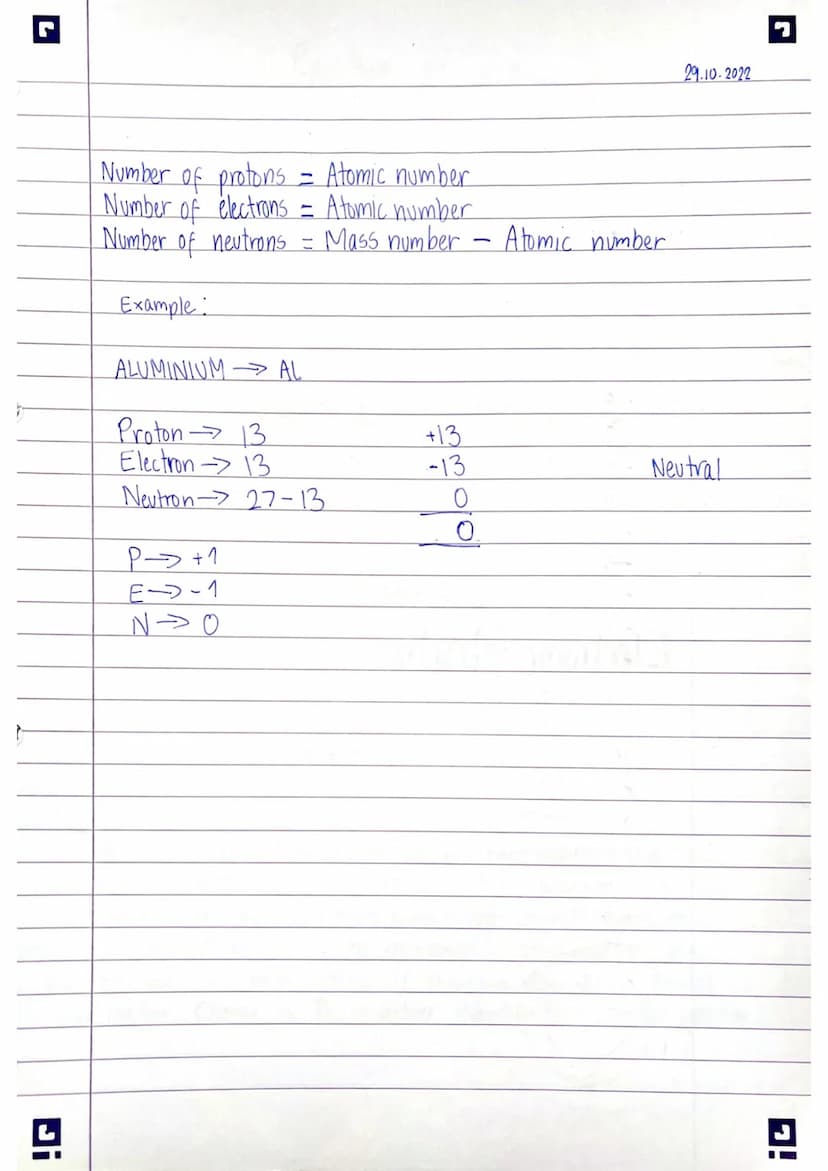 29.10.2022
Number of protons = Atomic number
Number of electrons = Atomic number
Number of neutrons = Mass number – Atomic number
Example:
ALUMINIUM → AL
Proton → 13 +13
Electron → 13 -13 Neutral
Neutron → 27-13 0
0
P → +1
E → -1
N → 0